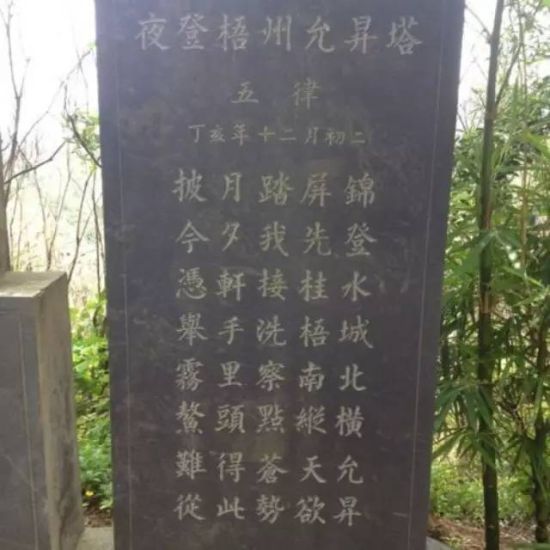 夜登梧州允昇塔
五律
丁亥年十二月初二
披月踏屏錦
今夕我先登
憑軒接桂水
舉手洗梧城
霧里察南北
鰲頭點縱橫
難得蒼天允
從此勢欲昇